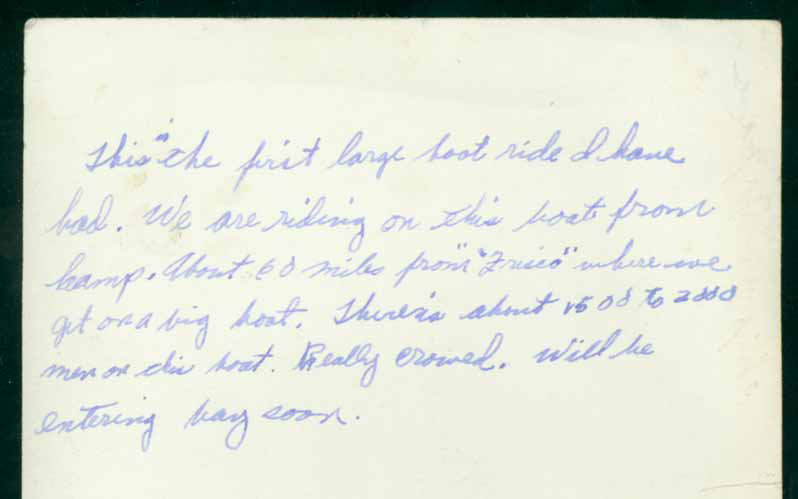 This is the first large boat ride I have
had. We are riding on this boat from
kamp. About 60 miles from "Frisco" where we
get on a big boat. There's about 1500 to 2000
men on this boat. Really crowed. Will be
entering bay soon.